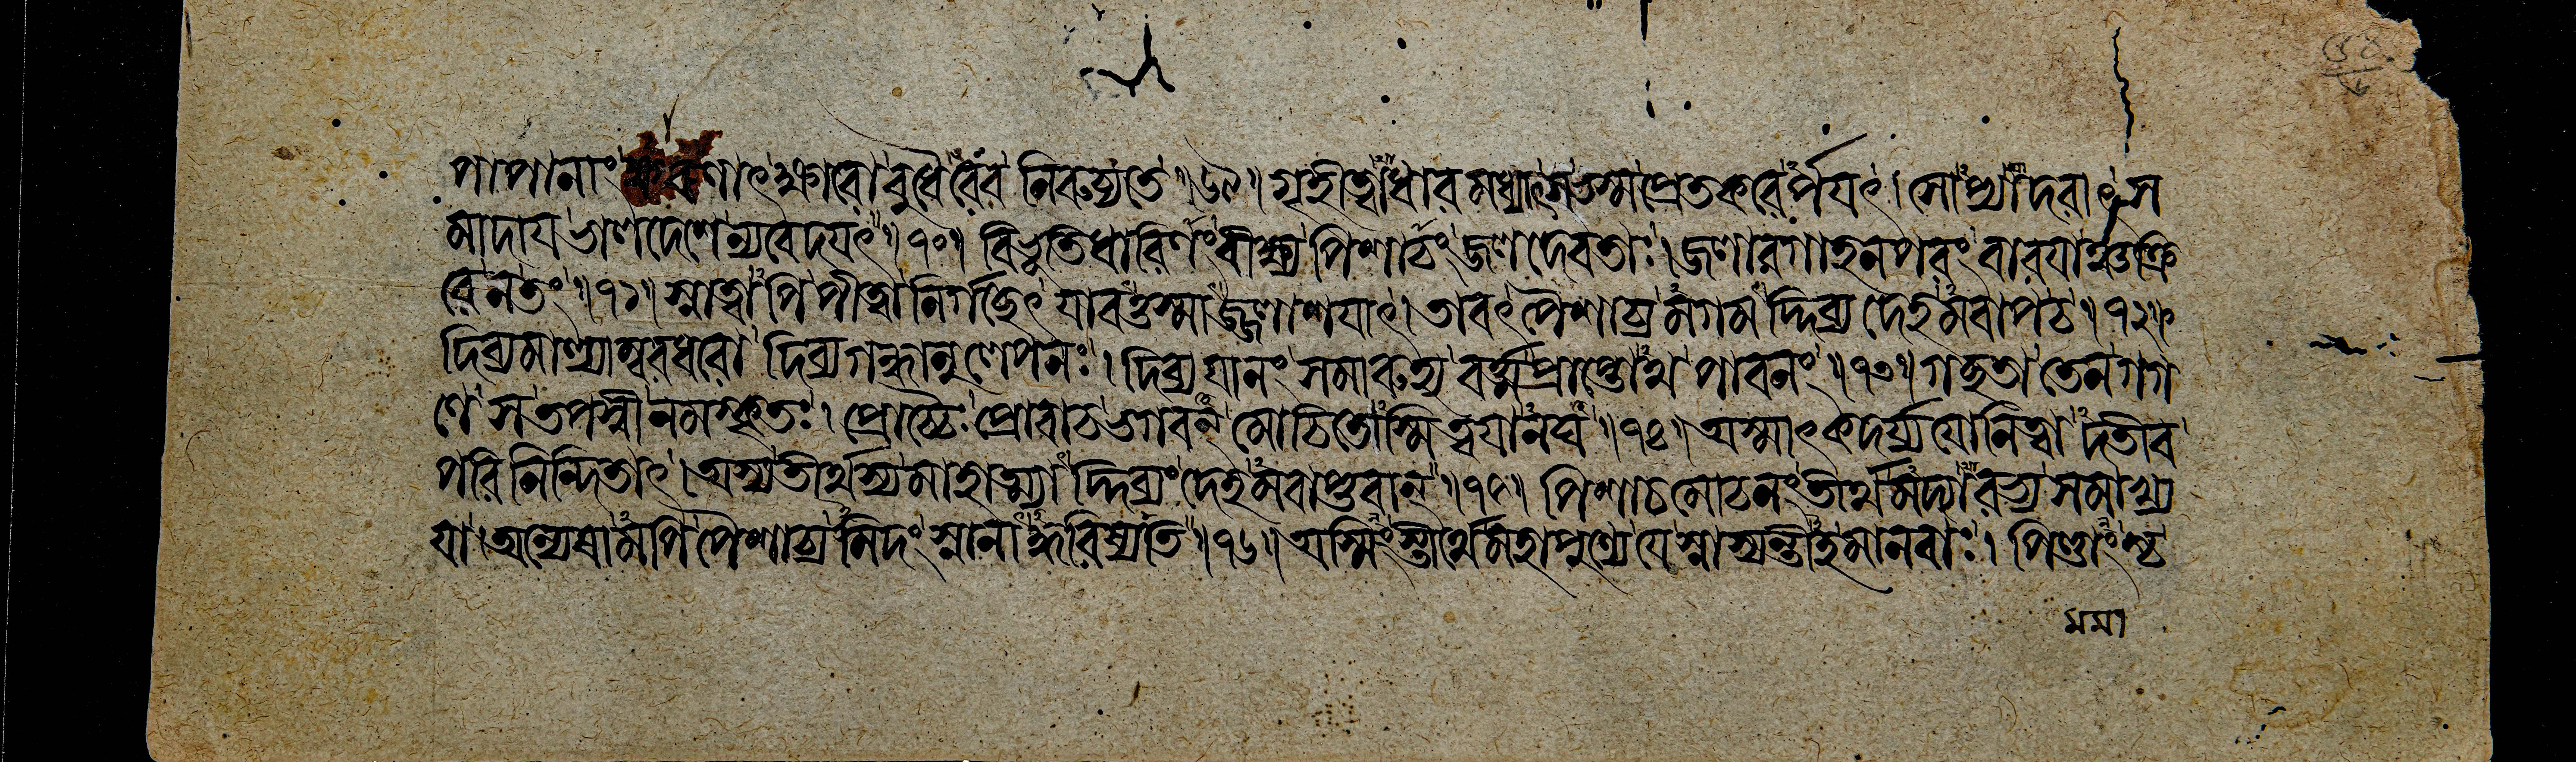 পাপানাং ক্ষারণাৎ ক্ষারো বুধৈরেব নিরুচ্যতে ॥৬৯॥ গৃহীত্বাধারমধ্যাৎস তস্য প্রেতকরের্পযৎ। সোপ্যাদরাৎ স
মাদায ভালদেশে ন্যবেদযৎ ॥৭০॥ বিভূতিধারিণং বীক্ষ্য পিশাচং জলদেবতাঃ। জলাবগাহনপরং বারযাঞ্চক্রি
রে ন তং ॥৭১॥ স্নাত্বাপি পীত্বা নির্গচ্ছেৎ যাবত্তস্মাজ্জলাশযাৎ। তাবৎ পৈশাচ্যমগমদ্দিব্যদেহমবাপ চ ॥৭২॥
দিব্যমাল্যাম্বরধরো দিব্যগন্ধানুলেপনঃ। দিব্যযানং সমারুহ্য বর্ত্ম প্রাপ্তোথ পাবনং ॥৭৩॥ গচ্ছতা তেন গগ
ণে স তপস্বী নমস্কৃতঃ। প্রোচ্চৈঃ প্রোবাচ ভগবন্ মোচিতোস্মি ত্বযানঘ ॥৭৪॥ তস্মাৎ কদর্য্যযোনিত্বাদতীব
পরিনিন্দিতাৎ। অস্য তীর্থস্য মাহাত্ম্যাদ্দিব্যং দেহমবাপ্তবান্ ॥৭৫॥ পিশাচমোচনং তীর্থমদ্যারভ্য সমাখ্য
যা। অন্যেষামপি পৈশাচ্যমিদং স্নানাদ্ধরিষ্যতি ॥৭৬॥ অস্মিংস্তীর্থে মহাপুণ্যে যে স্নাস্যন্তীহ মানবাঃ। পিণ্ডাংশ্চ